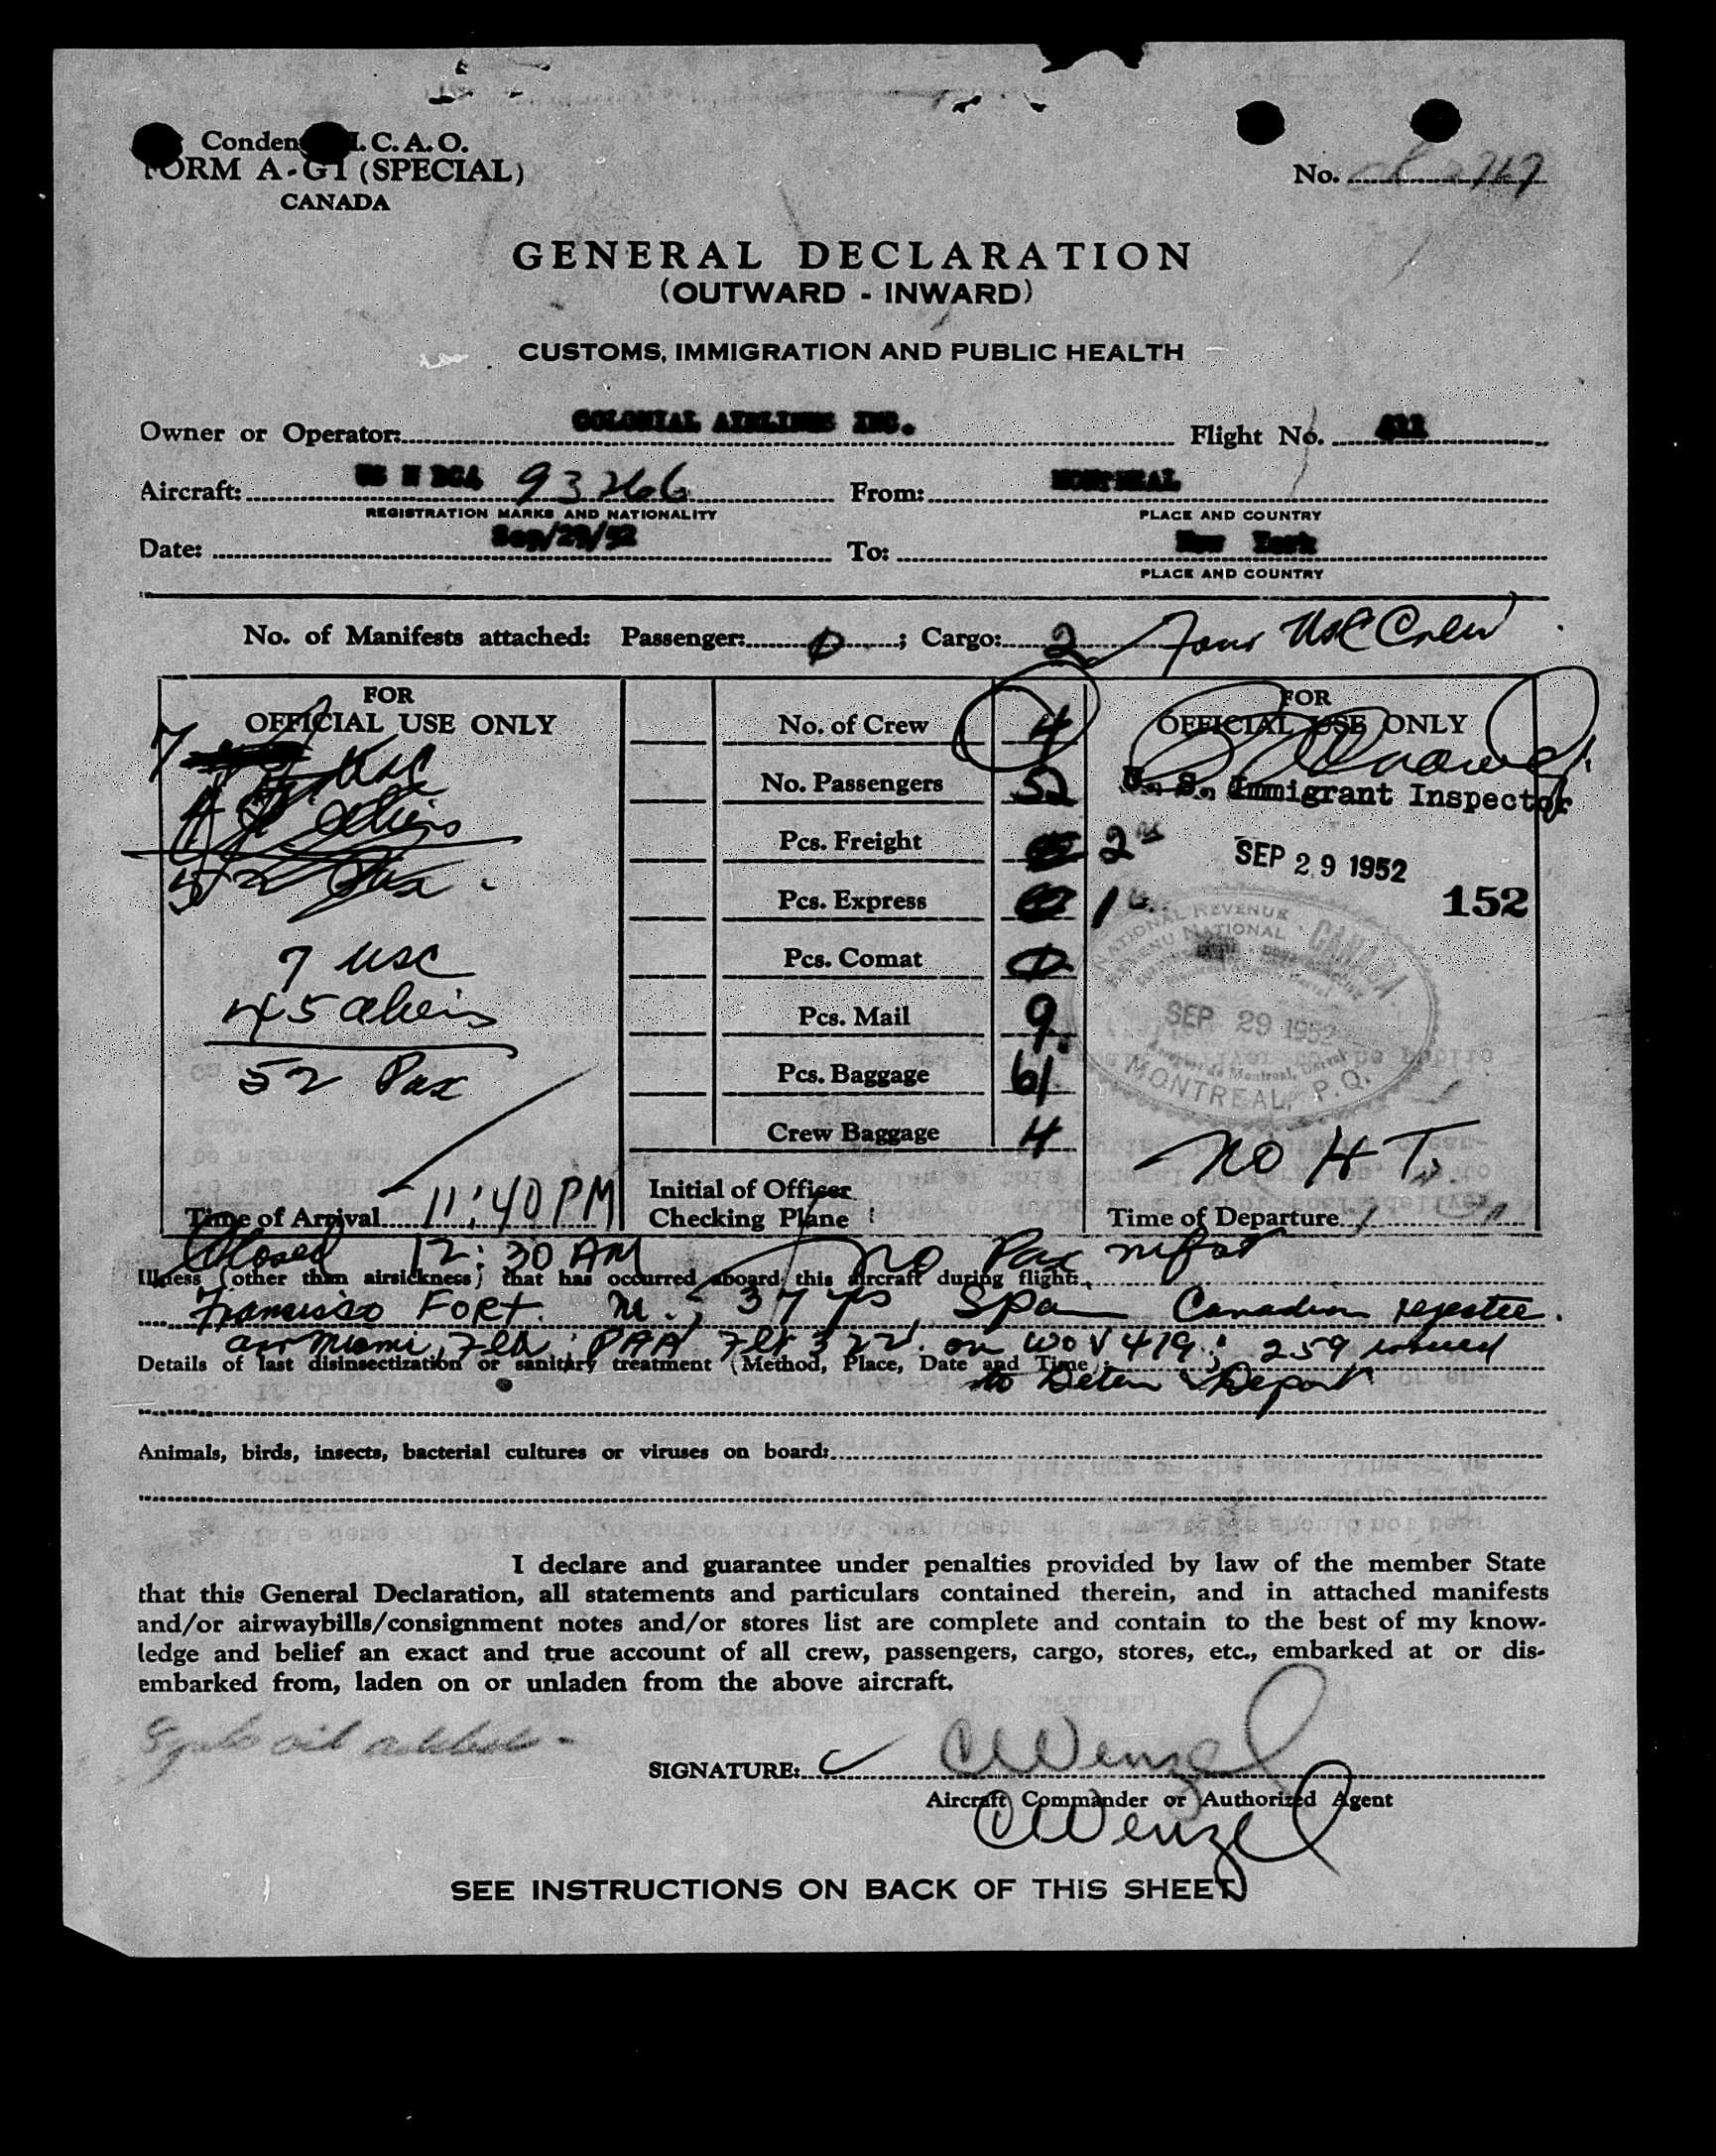 Conden I.C.A.O.
FORM A-G1 (SPECIAL)
CANADA
No. 2767
GENERAL DECLARATION
(OUTWARD - INWARD)
CUSTOMS, IMMIGRATION AND PUBLIC HEALTH
Owner or Operator: COLONIAL AIRLINES INC. Flight No.
Aircraft: US N DC4 93266 From: MONTREAL
REGISTRATION MARKS AND NATIONALITY PLACE AND COUNTRY
Date: Sep/29/52 To: New York
PLACE AND COUNTRY
No. of Manifests attached: Passenger: 0 ; Cargo: 2 Four USC Crew
FOR
OFFICIAL USE ONLY
7 USC
Aliens
52 Pax.
7 USC
45 aliens
52 Pax
Time of Arrival 11:40 PM
No. of Crew 4
No. Passengers 52
Pcs. Freight 2
Pcs. Express 1
Pcs. Comat 0
Pcs. Mail 9
Pcs. Baggage 61
Crew Baggage 4
Initial of Officer
Checking Plane
FOR
OFFICIAL USE ONLY
U. S. Immigrant Inspector
SEP 29 1952
152
NATIONAL REVENUE
REVENU NATIONAL
CANADA
SEP 29 1952
MONTREAL, P.Q.
No H T.
Time of Departure
Closed 12:30 AM No Pax mfst
Illness (other than airsickness) that has occurred aboard this aircraft during flight:
Francisco Fort. M.; 37 yrs, Spain Canadian rejectee.
arr Miami, Fla; PAA Flt 322 on WO V 419; 259 issued
Details of last disinsectization or sanitary treatment (Method, Place, Date and Time):
to Detain & Deport
Animals, birds, insects, bacterial cultures or viruses on board:
I declare and guarantee under penalties provided by law of the member State
that this General Declaration, all statements and particulars contained therein, and in attached manifests
and/or airwaybills/consignment notes and/or stores list are complete and contain to the best of my know-
ledge and belief an exact and true account of all crew, passengers, cargo, stores, etc., embarked at or dis-
embarked from, laden on or unladen from the above aircraft.
oil
SIGNATURE: CWWenzel
Aircraft Commander or Authorized Agent
CWWenzel
SEE INSTRUCTIONS ON BACK OF THIS SHEET